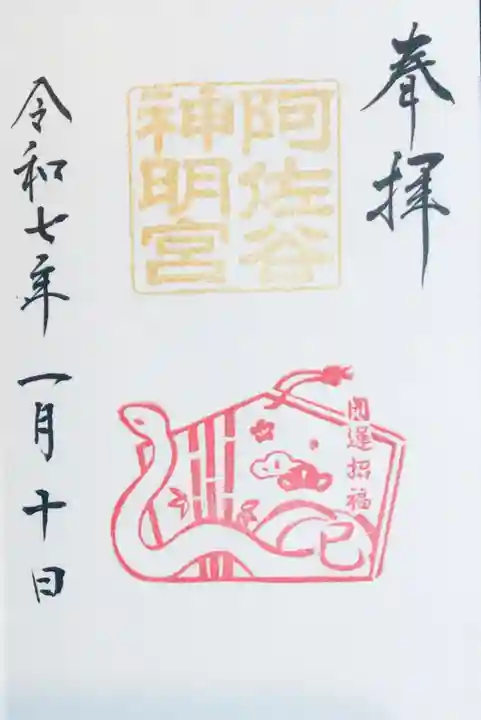 奉拝
阿佐谷
神明宮
開運招福
巳
令和七年一月十日